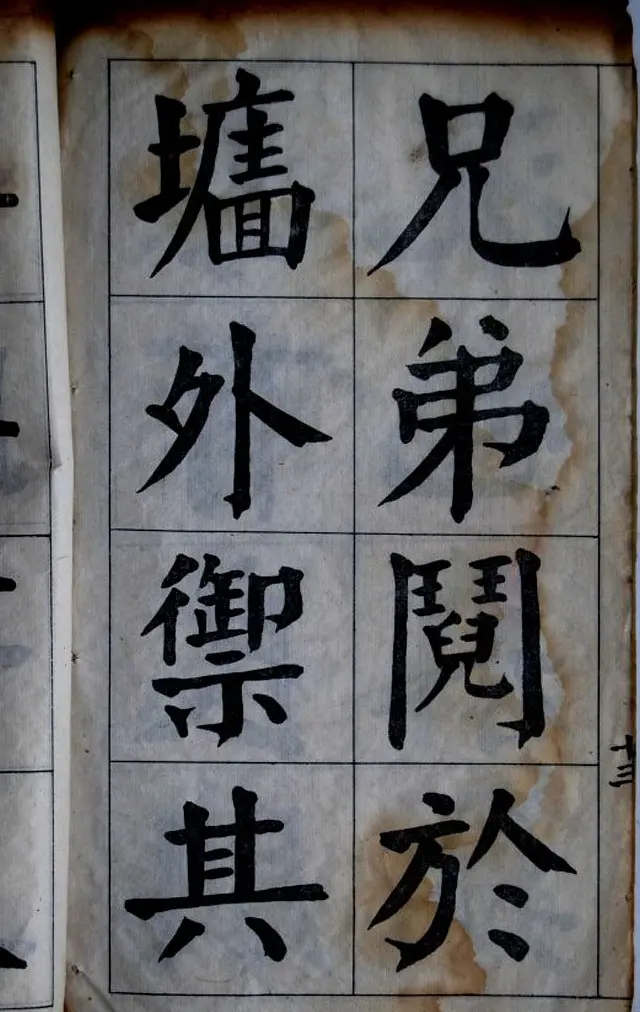 兄弟鬩於
墻外禦其
十三